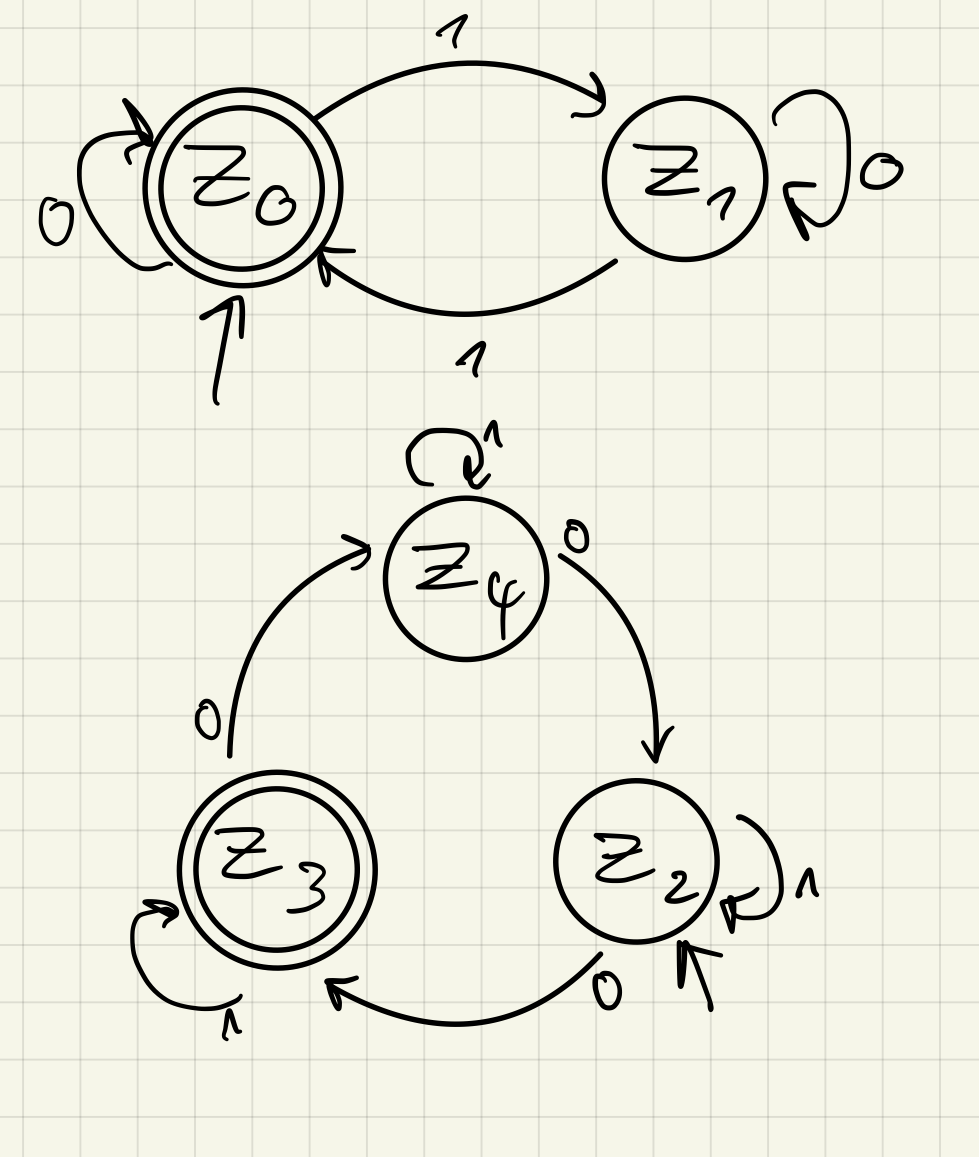 1
0 Z0 Z1 0
1
1
Z4 0
0
Z3 Z2 1
0
1